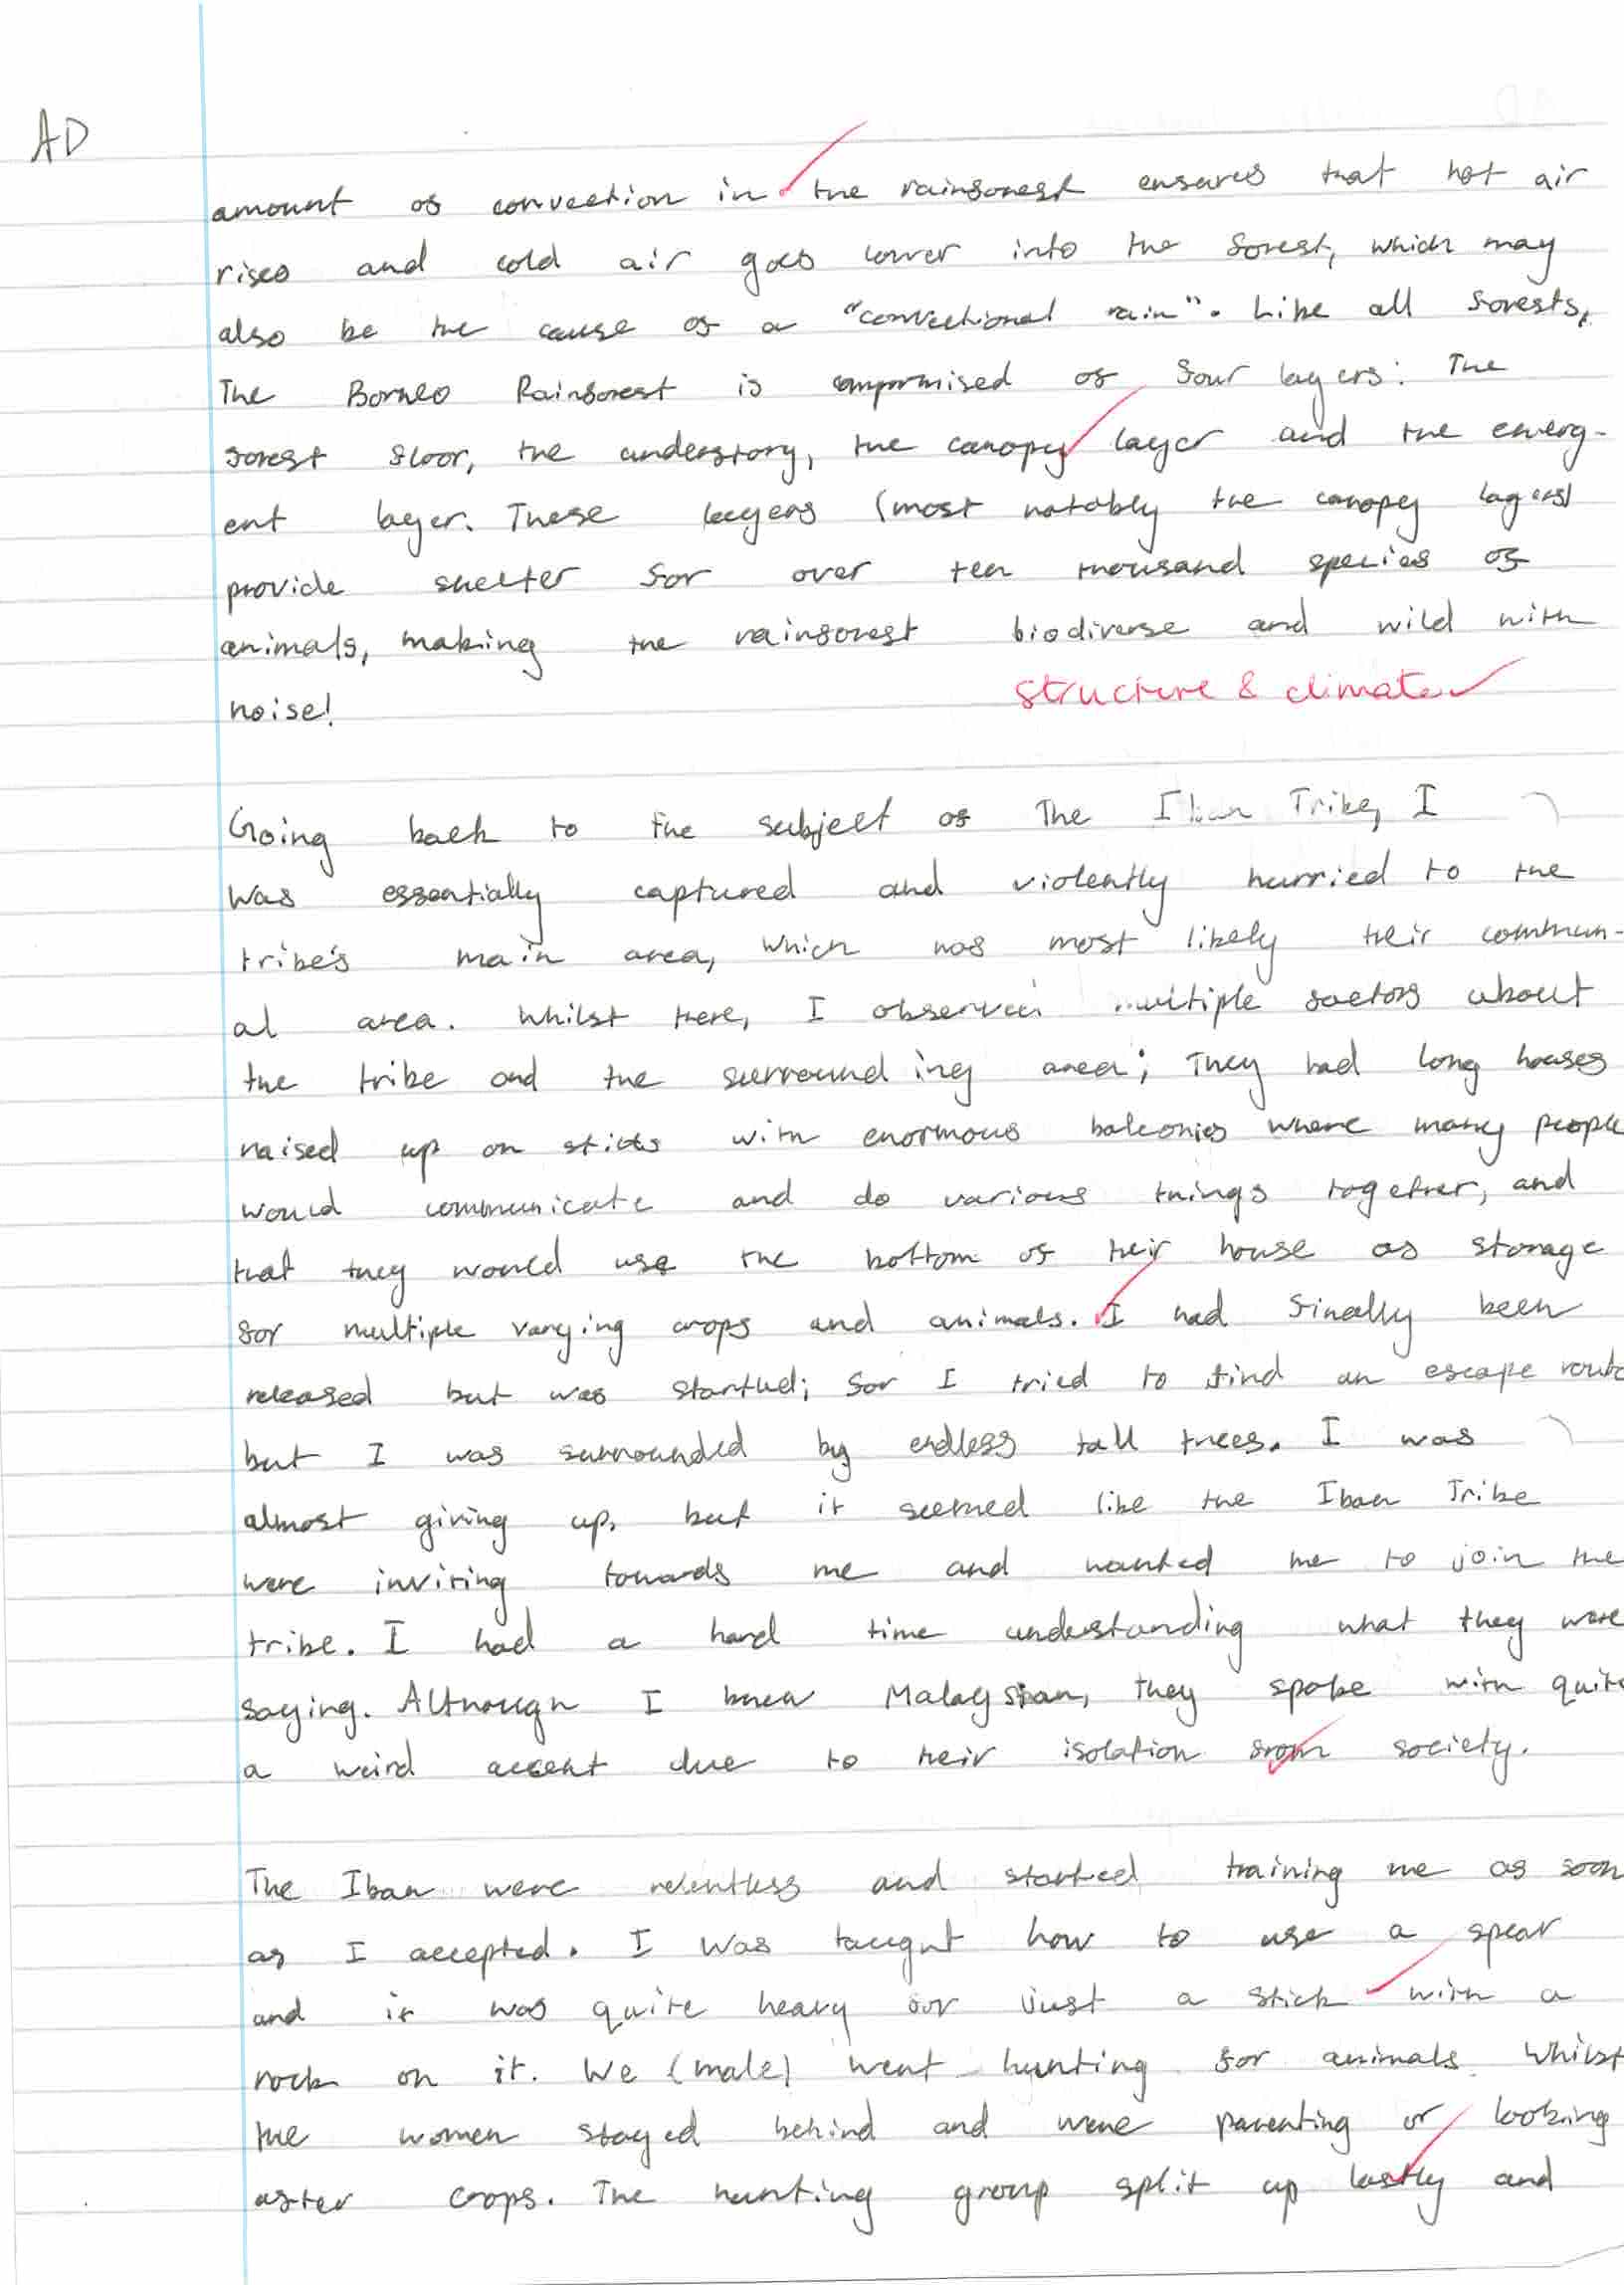 AD
amount of convection in the rainforest ensures that hot air
rises and cold air goes lower into the forest, which may
also be the cause of a "convectional rain". Like all forests,
The Borneo Rainforest is compormised of four layers: The
forest floor, the understory, the canopy layer and the emerg-
ent layer. These layers (most notably the canopy layers)
provide shelter for over ten thousand species of
animals, making the rainforest biodiverse and wild with
noise!
structure & climate
Going back to the subject of The Iban Tribe, I
was essentially captured and violently hurried to the
tribe's main area, which was most likely their commun-
al area. Whilst there, I observed multiple factors about
the tribe and the surrounding area; They had long houses
raised up on sticks with enormous balconies where many people
would communicate and do various things together, and
that they would use the bottom of their house as storage
for multiple varying crops and animals. I had finally been
released but was startled; for I tried to find an escape route
but I was surrounded by endless tall trees. I was
almost giving up, but it seemed like the Iban Tribe
were inviting towards me and wanted me to join the
tribe. I had a hard time understanding what they were
saying. Although I knew Malaysian, they spoke with quite
a weird accent due to their isolation from society.
The Iban were relentless and started training me as soon
as I accepted. I was taught how to use a spear
and it was quite heavy for just a stick with a
rock on it. We (male) went hunting for animals whilst
the women stayed behind and were parenting or looking
after crops. The hunting group split up lastly and